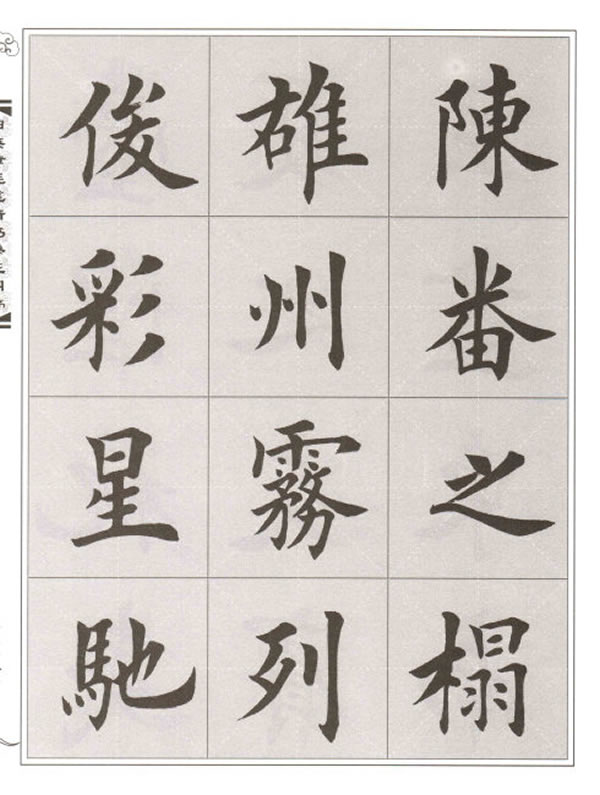 陳番之榻
雄州霧列
俊彩星馳